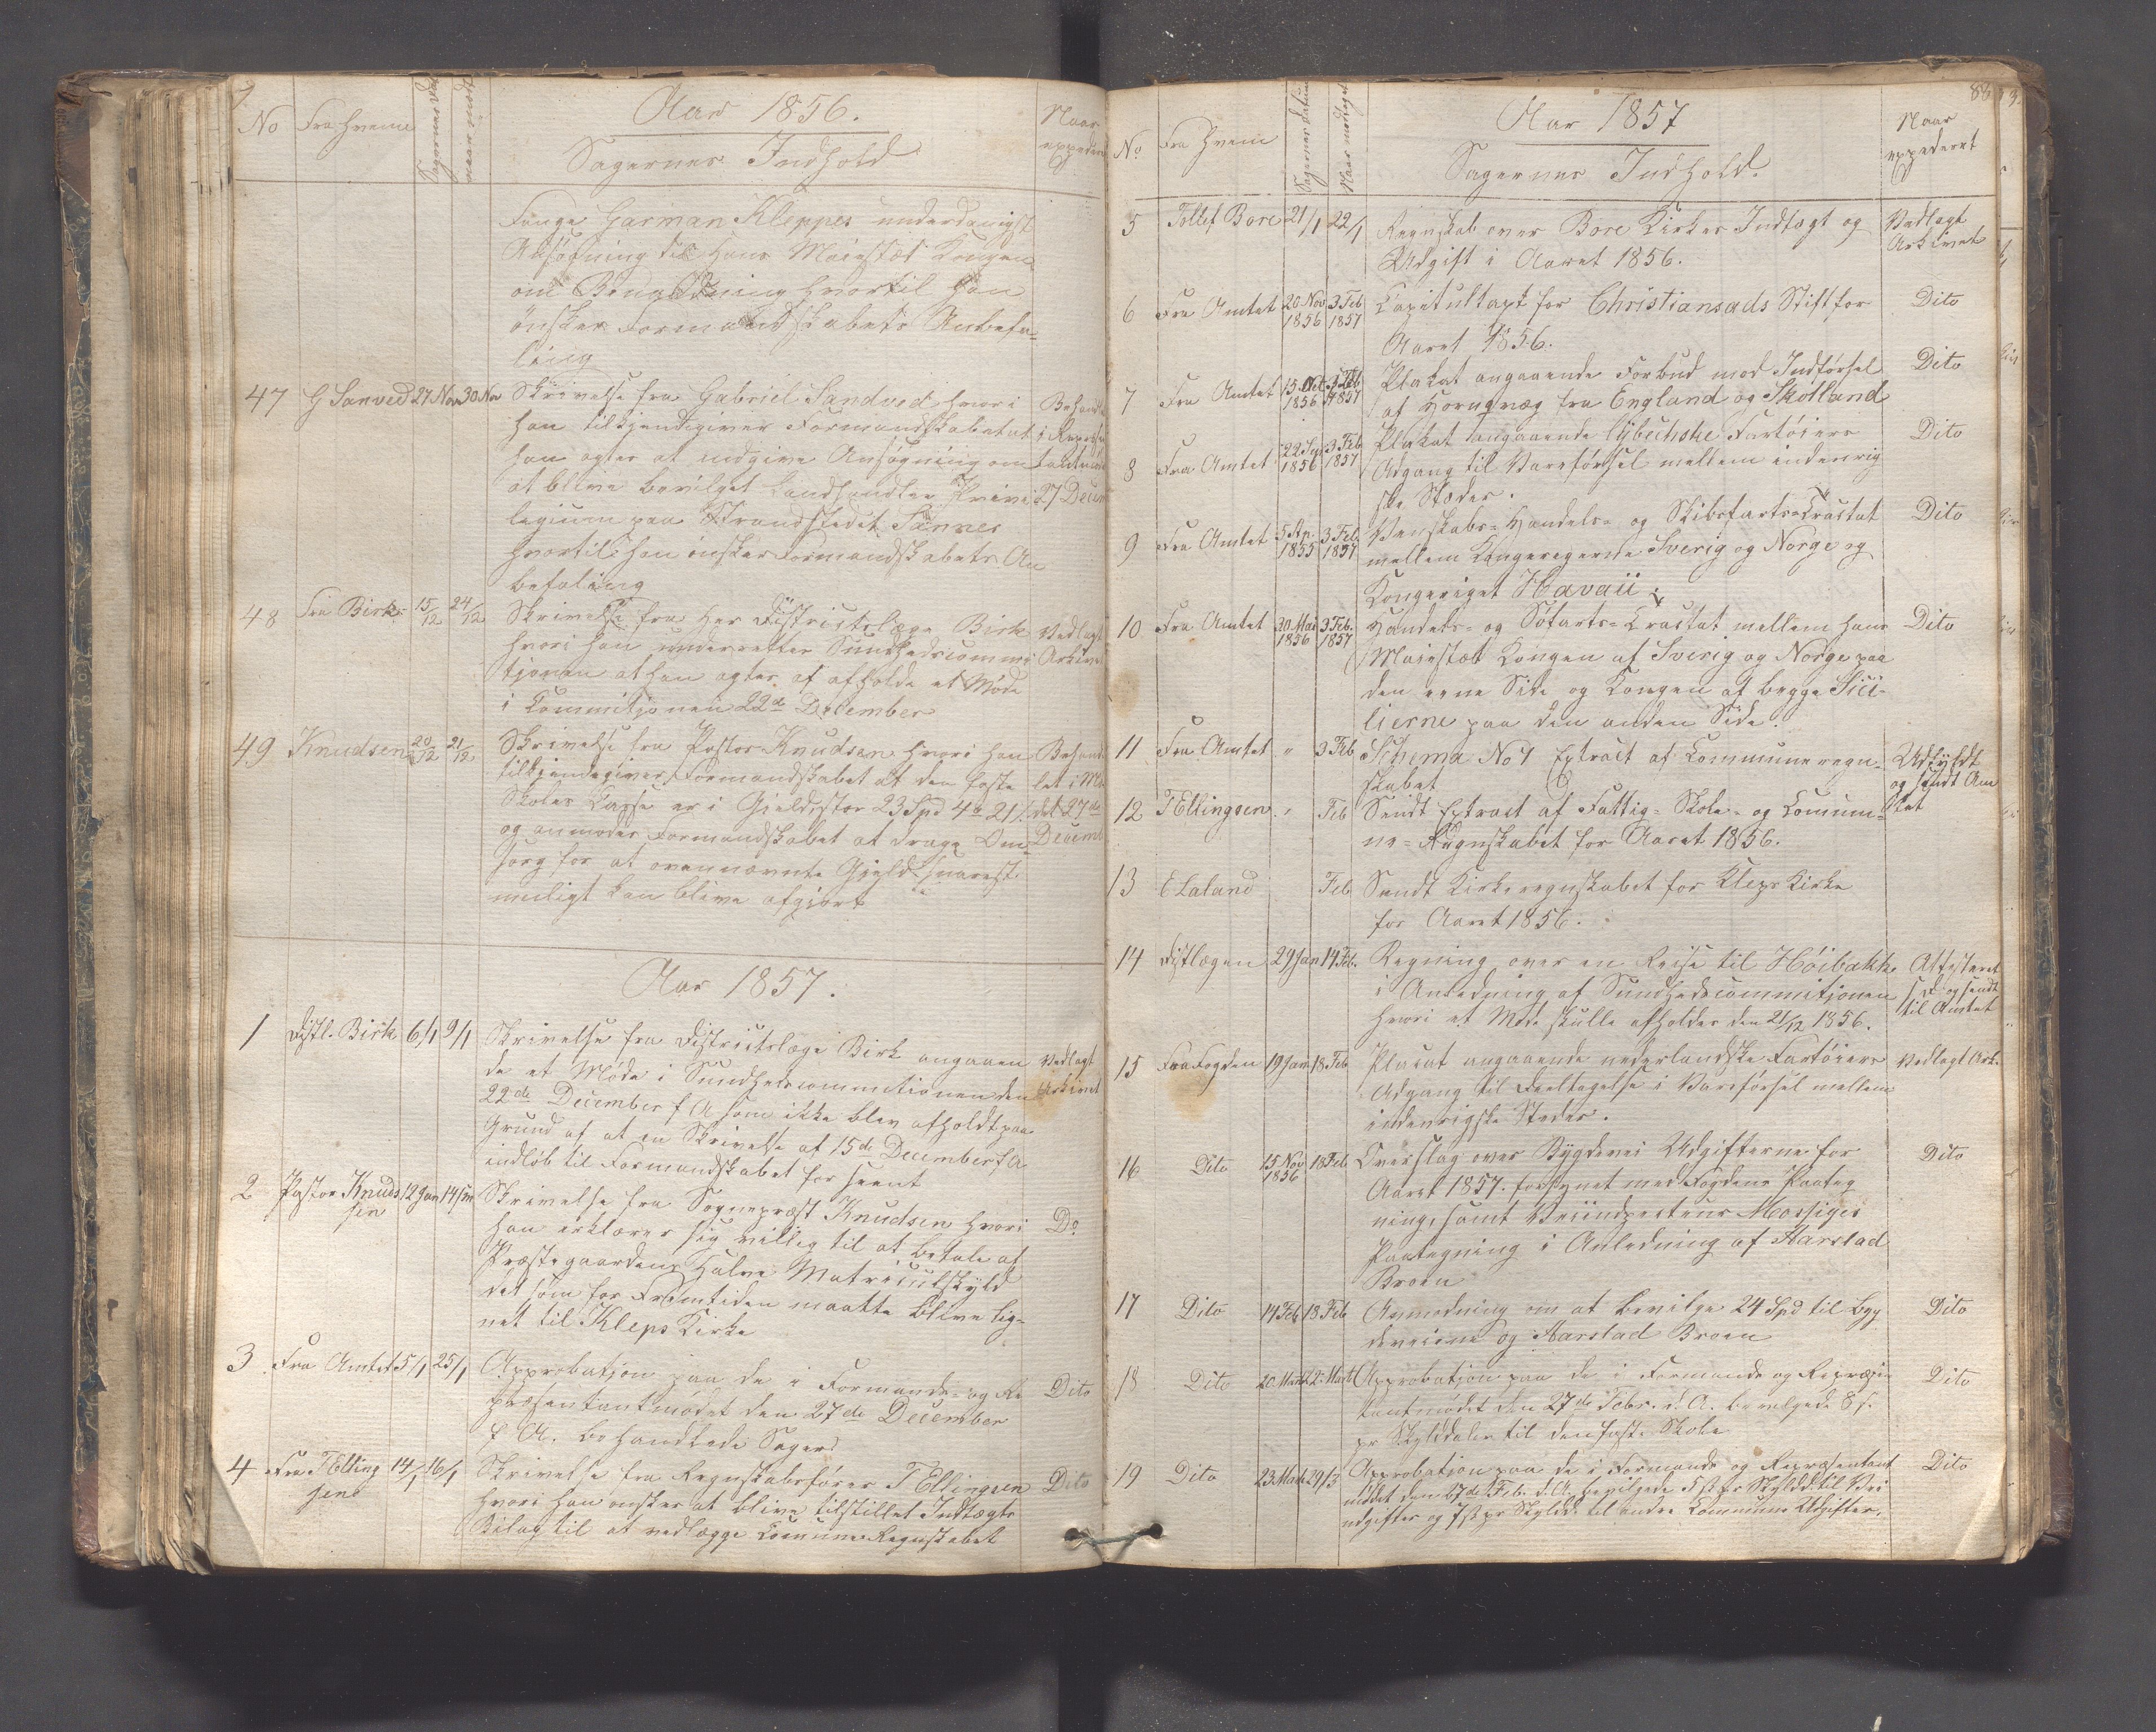 No Fra hvem Sagernes Dat naar modt Aar 1856. Naar expederet
Sagernes Indhold
Fange Garman Kleppes underdanigst
Ansøgning til Hans Maiestæt Kongen
om Benaadning hvortil han
ønsker Formandskabets Anbefa-
ling
47 G Sanved 27 Nov 30 Nov Skrivelse fra Gabriel Sandved hvori Behandl
han tilkjendegiver Formandskabet at i Repræsen
han agter at indgive Ansøgning om tantmøde
at blive bevilget Landhandler Privi- 27 Decem
legium paa Strandstedet Sannes
hvortil han ønsker Formandskabets An
befaling
48 Fra Birk 15/12 24/12 Skrivelse fra Her Districtslæge Birk Vedlagt
hvori han underretter Sundhedscommi Arkivet
sjonen at han agter at afholde et Møde
i Commisjonen 22de December
49 Knudsen 20/12 21/12 Skrivelse fra Pastor Knudsen hvori han Behand
tilkjendegiver Formandskabet at den faste let i Mø
Skoles Casse er i Gjeld stor 23 Spd 4 21 s. det 27de
og anmoder Formandskabet at drage Om- Decemb
sorg for at ovennævnte Gjeld snarest
muligt kan blive afgjort
Aar 1857.
1 Distl. Birk 6/1 9/1 Skrivelse fra Districtslæge Birk angaaen Vedlagt
de et Møde i Sundhedscommitionen den Arkivet
22de December f A som ikke blev afholdt paa
Grund af at en Skrivelse af 15de December f A
indløb til Formandskabet for seent
2 Pastor Knud 12 Jan 14 Jan Skrivelse fra Sognepræst Knudsen hvori Do
sen han erklærer sig villig til at betale af
Præstegaardens halve Matriculskyld
det som for Fremtiden maatte blive lig-
net til Kleps Kirke
3 Fra Amtet 15/1 25/1 Approbatjon paa de i Formands- og Re Dito
præsentantmødet den 27de December
f A. behandlede Sager
4 Fra T Elling 14/1 16/1 Skrivelse fra Regnskabsfører T Ellingsen Dito
sen hvori han ønsker at blive tilstillet Indtægts
Bilag til at vedlægge CommuneRegnskabet
88
No Fra hvem Sagernes datum Naar modtaget Aar 1857 Naar expederet
Sagernes Indhold.
5 Tollef Bore 21/1 22/1 Regnskab over Bore Kirkes Indtægt og Vedlagt
Udgift i Aaret 1856. Arkivet
6 Fra Amtet 20 Nov 1856 3 Feb 1857 Capitultaxt for Christiansads Stift for Dito
Aaret 1856.
7 Fra Amtet 15 1856 3 Feb 1857 Plakat angaaende Forbud mod Indførsel Dito
af Hornqvæg fra England og Skotland
8 Fra Amtet 22 Sep 1856 3 Feb 1857 Plakat angaaende lybechske Fartøiers Dito
Adgang til Vareførsel mellem indenrig
ske Steder.
9 Fra Amtet 5 Ap. 1855 3 Feb. 1857 Venskabs- Handels- og Skibsfarts-Tractat Dito
mellem Kongerigerne Sverig og Norge og
Kongeriget Havaii.
10 Fra Amtet 30 Mai 1856 3 Feb. 1857 Handels- og Søfarts-Tractat mellem Hans Dito
Maiestæt Kongen af Sverig og Norge paa
den eene Side og Kongen af begge Sici-
lierne paa den anden Side
11 Fra Amtet " 3 Feb Schema No 1 Extract af Communeregn- Udfyldt
skabet og sendt Am
12 T Ellingsen " Feb Sendt Extract af Fattig- Skole- og Commu- tet
ne-Regnskabet for Aaret 1856.
13 E Laland Feb Sendt Kirkeregnskabet for Kleps Kirke
for Aaret 1856.
14 Distlægen 29 Jan 14 Feb. Regning over en Reise til Høibakke Attesteret
i Anledning af Sundhedscommisjonen og sendt
hvori et Møde skulle afholdes den 21/12 1856. til Amtet
15 Fra Fogden 19 Jan 18 Feb Placat angaaende nederlandske Fartøiers Vedlagt Ark.
Adgang til Deeltagelse i Vareførsel mellem
indenrigske Steder.
16 Dito 15 Nov 1856 18 Feb Overslag over Bygdevei Udgifterne for Dito
Aaret 1857. forsynet med Fogdens Paateg
ning, samt Veiinspecteur Mossiges
Paategning i Anledning af Aarstad
Broen
17 Dito 14 Feb 18 Feb Anmodning om at bevilge 24 Spd til Byg Dito
deveiene og Aarstad Broen
18 Dito 20 Marts 2 Marts Approbatjon paa de i Formands og Repræsen Dito
tantmødet den 27de Febr. d. A. bevilgede 8 s.
pr Skylddaler til den faste Skole
19 Dito 23 Marts 29/3 Approbatjon paa de i Formands og Repræsentant Dito
mødet den 27de Feb. d. A. bevilgede 5 ß pr Skyldd. til Vei
udgifter og 7 ß pr Skyldd. til andre Commune Udgifter.